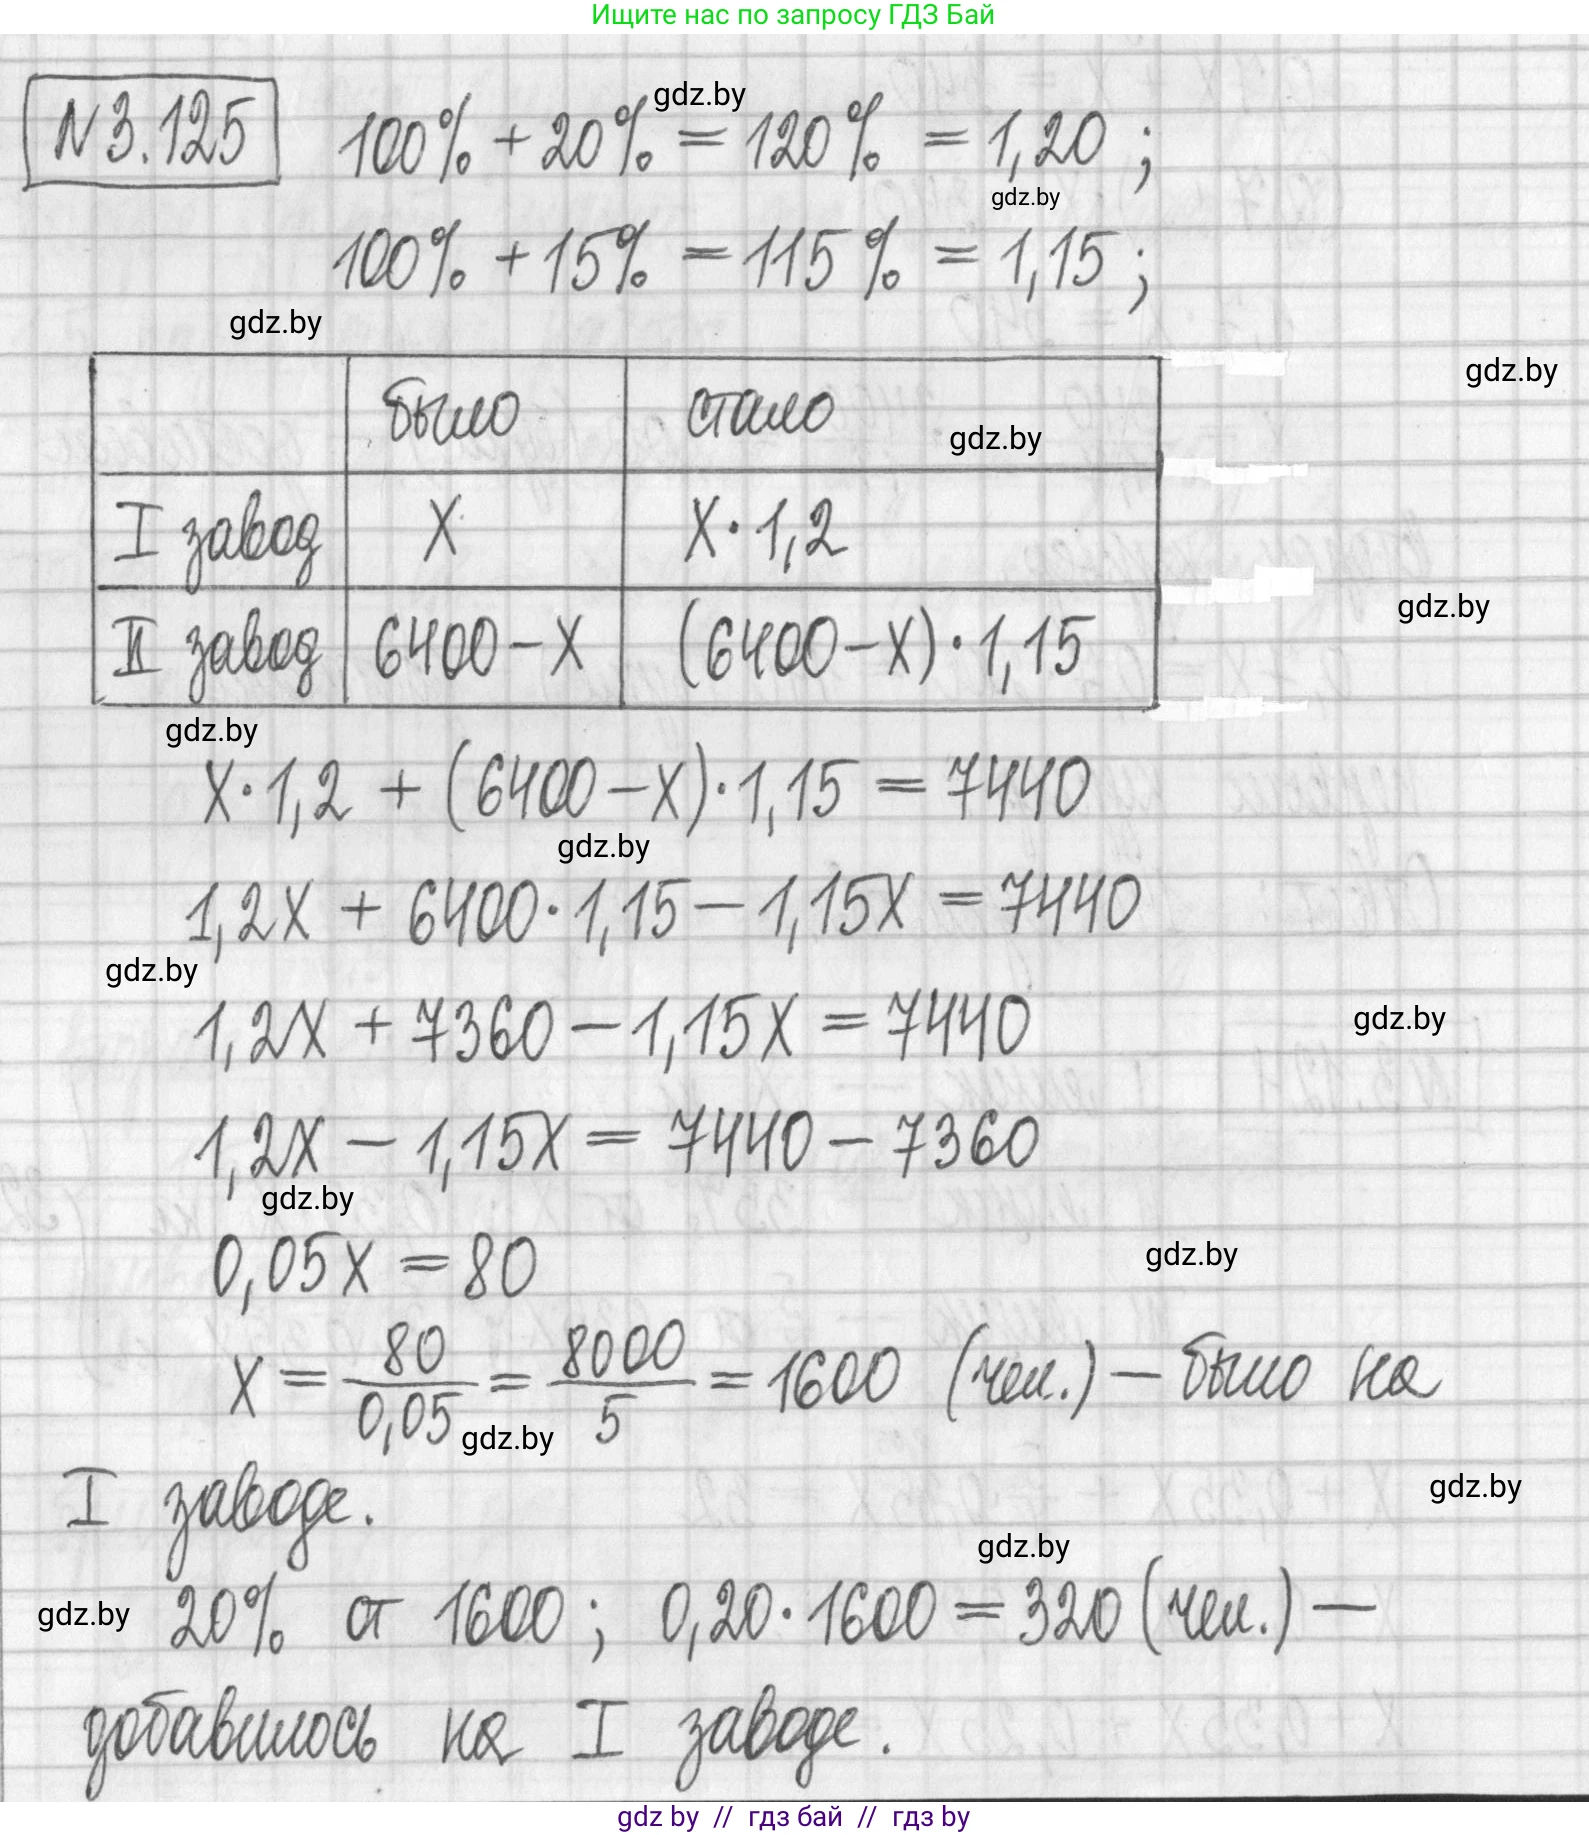 Ищите нас по запросу ГДЗ Бай
N 3.125 100% + 20% = 120% = 1,20 ;
gdz.by
gdz.by
100% + 15% = 115% = 1,15 ;
gdz.by
gdz.by
было стало
gdz.by
I завод X X · 1,2
gdz.by
II завод 6400 – X (6400 – X) · 1,15
gdz.by
X · 1,2 + (6400 – X) · 1,15 = 7440
gdz.by
1,2X + 6400 · 1,15 – 1,15X = 7440
gdz.by
1,2X + 7360 – 1,15X = 7440
gdz.by
1,2X – 1,15X = 7440 – 7360
gdz.by
0,05X = 80
gdz.by
X = 80/0,05 = 8000/5 = 1600 (чел.) – было на
gdz.by
I заводе.
gdz.by
gdz.by
20% от 1600 ; 0,20 · 1600 = 320 (чел.) –
gdz.by
добавилось на I заводе.
gdz by // гдз бай // гдз by